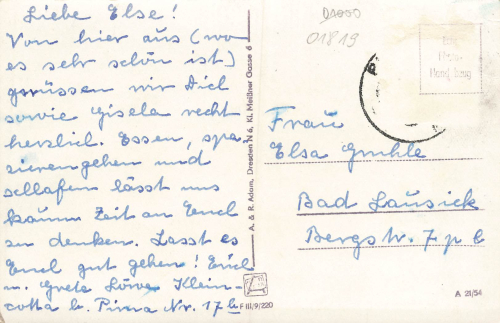 Liebe Else!
Von hier aus (wo
es sehr schön ist)
grüssen wir Dich
sowie Gisela recht
herzlich. Essen, spa
zierengehen und
schlafen lässt uns
kaum Zeit an Euch
zu denken. Lasst es
Euch gut gehen! Erich
u. Grete Löwe Klein-
cotta b. Pirna Nr. 17 b
A. & R. Adam, Dresden N 6, Kl. Meißner Gasse 6
F III/9/220
01819
Frau
Elsa Gruhle
Bad Lausick
Bergstr. 7 p b
A 21/54